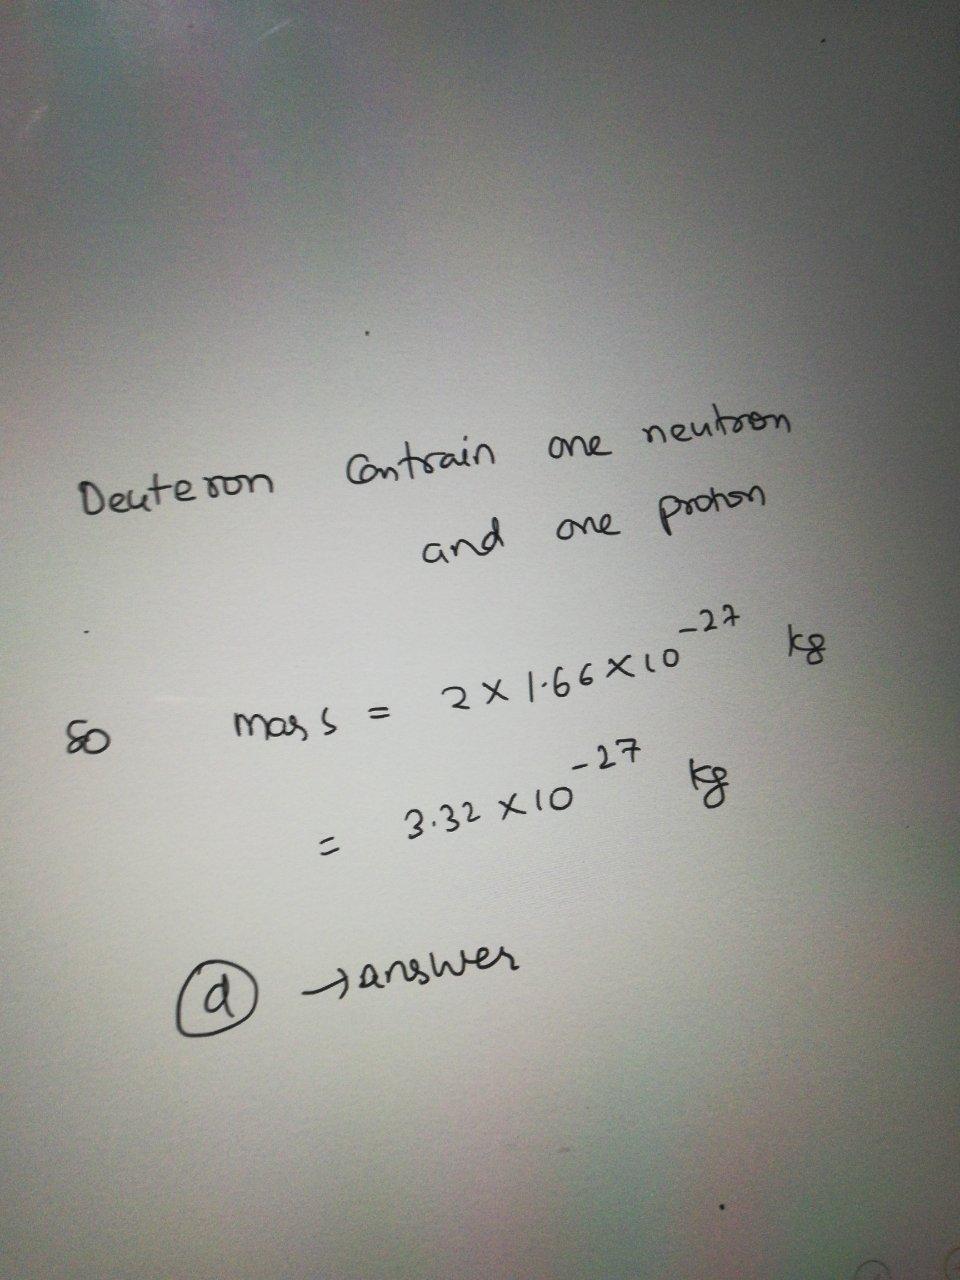 Deuteron Contrain one neutron
and one proton
So mass = 2 × 1.66 × 10^-27 kg
= 3.32 × 10^-27 kg
d → answer